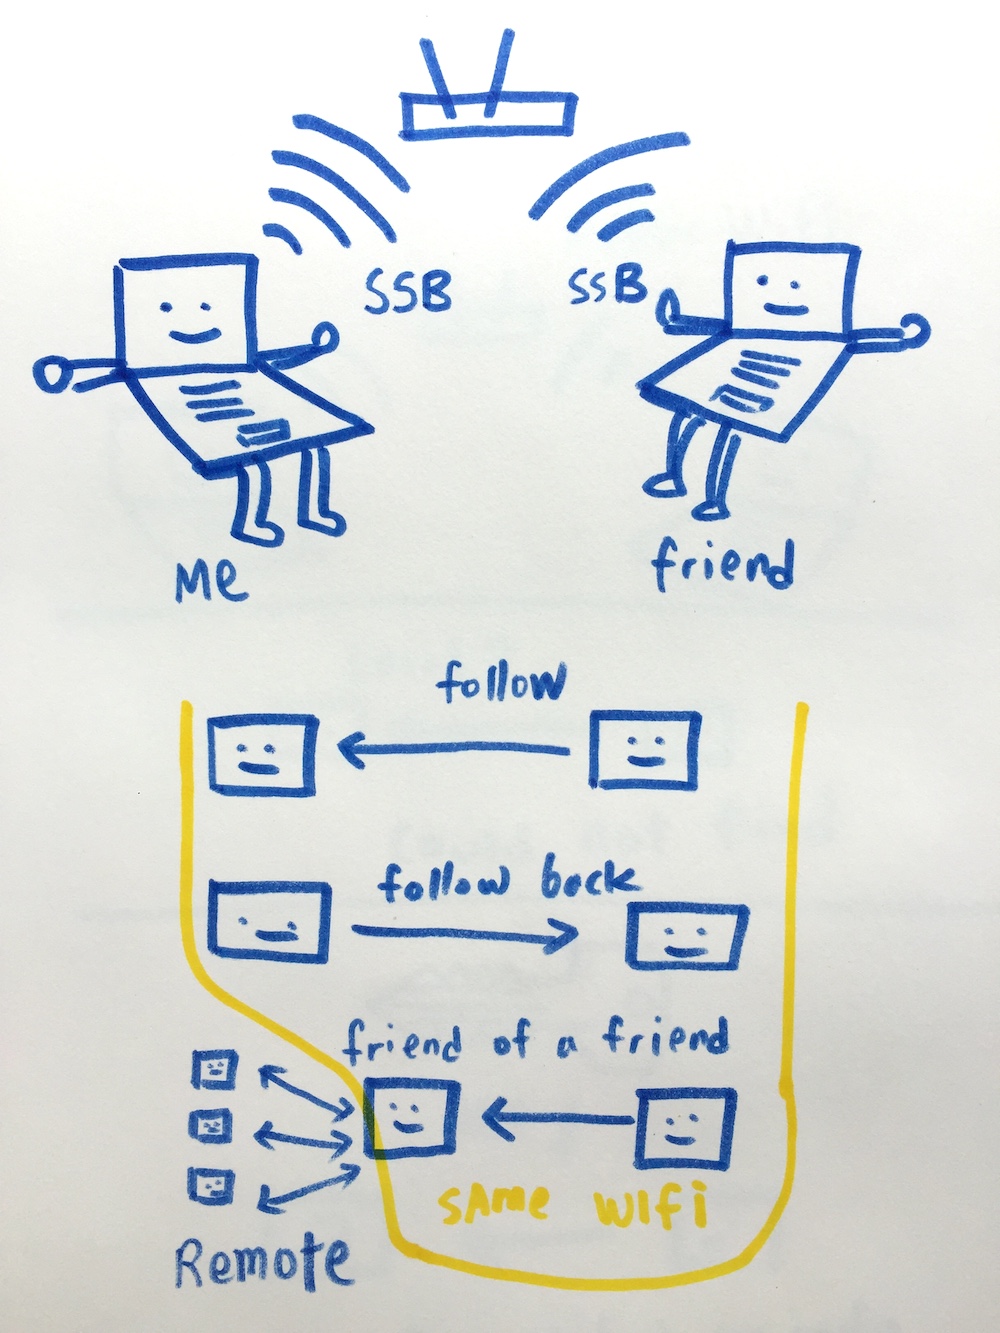 SSB
SSB
Me
friend
follow
follow back
friend of a friend
SAme WIfi
Remote